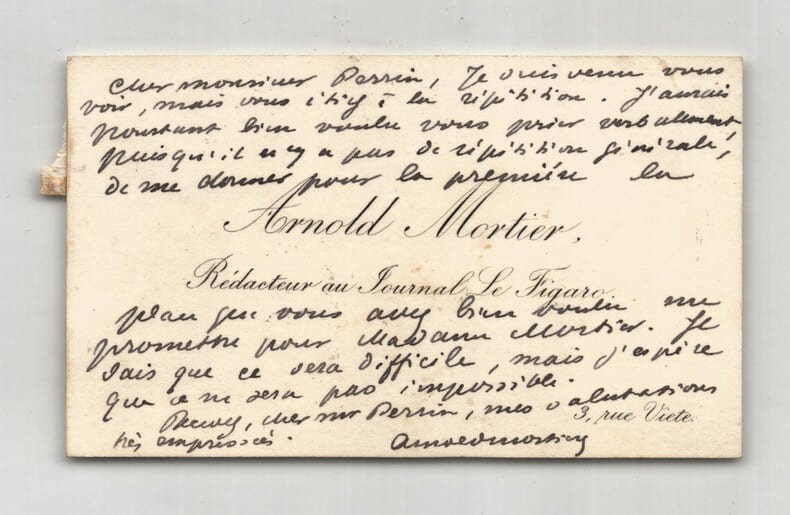 Cher monsieur Perrin, Je suis venu vous
voir, mais vous étiez à la répétition. J'aurais
pourtant bien voulu vous prier verbalement
puisqu'il n'y a pas de répétition générale,
de me donner pour la première la
Arnold Mortier,
Rédacteur au Journal Le Figaro
place que vous avez bien voulu me
promettre pour Madame Mortier. Je
sais que ce sera difficile, mais j'espère
que ce ne sera pas impossible.
Recevez, cher mr Perrin, mes salutations
3, rue Viete.
très empressées.
Arnold Mortier